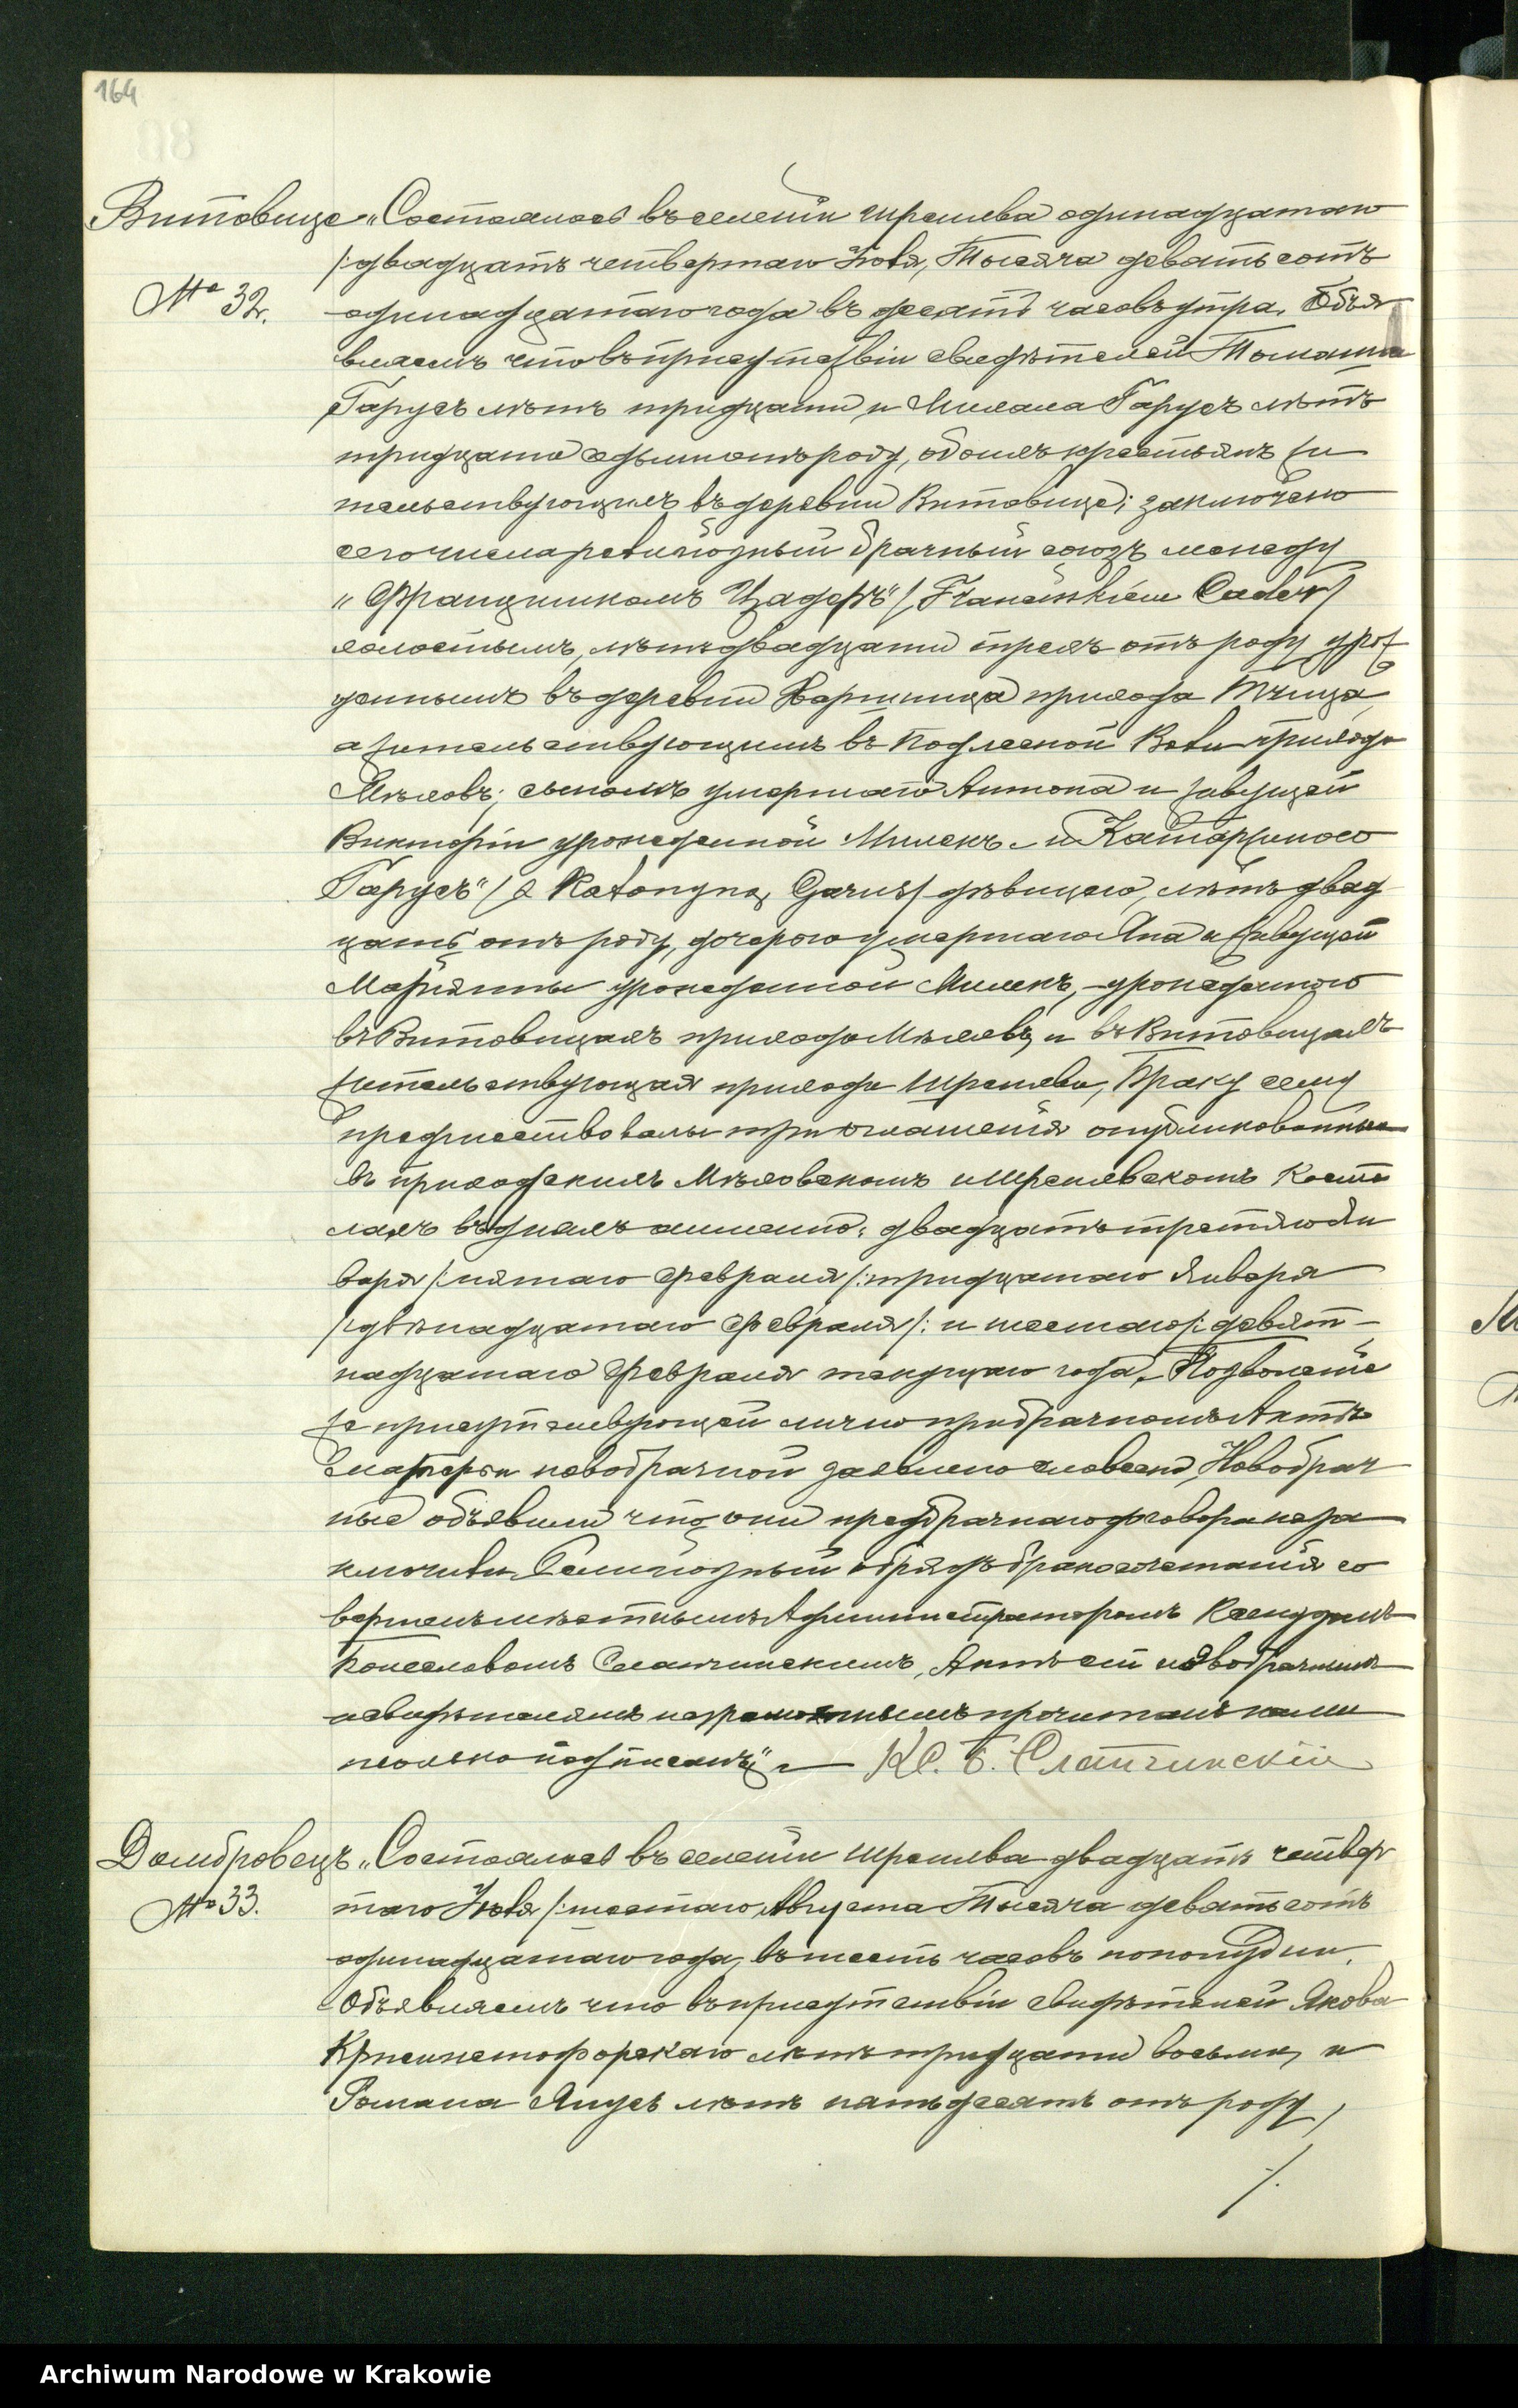 164
Витовице „Состоялось въ селеніи Шрешява одинадцатаго
/:двадцать четвертаго Іюля, Тысяча девятьсотъ
№ 32. одинадцатаго года въ десять часовъ утра. Объя
вляемъ что въ присутствіи свидѣтелей Томаша
Гарусъ лѣтъ тридцати и Михала Гарусъ лѣтъ
тридцати отъ роду, обоихъ крестьянъ жи
тельствующихъ въ деревни Витовице; заключено
сего числа религіозный брачный союзъ между
„Францишкомъ Цадеръ" /Franciszkiem Cader/
холостымъ, лѣтъ двадцати трехъ отъ роду уро
деннымъ въ деревни Харшница прихода Тчица,
а жительствующимъ въ Подлесной Воли прихода
Мѣховъ; сыномъ умершаго Антона и живущей
Викторіи урожденной Милекъ и Катаржиною
Гарусъ" /z Katarzyną Garus/ дѣвицею, лѣтъ двад
цать отъ роду, дочерою умершаго Яна и живущей
Маріянны урожденной Милекъ, урожденною
въ Витовицахъ прихода Мѣховъ, и въ Витовицахъ
жительствующая прихода Шрешява, Браку сему
предшествовалы три оглашенія опубликованные
въ приходскихъ Мѣховскомъ и Шрешявскомъ Косте
лахъ въ дняхъ аименно: двадцать третяго Ян
варя /:пятаго Февраля/: тридцатаго Января
/:двѣнадцатаго Февраля/: и шестаго /:девят-
надцатаго Февраля текущаго года, Позволеніе
присутствующей лично при брачномъ Актѣ
матери новобрачной заявлено словесно, Новобрач
ные объявили что они предбрачнаго договора неза
ключили Религіозный обрядъ бракосочетанія со
вершенъ мѣстнымъ Администраторомъ Ксендзомъ
Болеславомъ Сланчинскимъ, Актъ сей новобрачнымъ
и свидѣтелямъ неграмотнымъ прочитанъ нами
только подписанъ" Кс. Б. Сланчинскій
Домбровецъ „Состоялось въ селеніи Шрешява двадцать четвер
№ 33. таго Іюля /:шестаго Августа Тысяча девятьсотъ
одинадцатаго года, въ шесть часовъ пополудни.
Объявляемъ что въ присутствіи свидѣтелей Якова
Кржиштофорскаго лѣтъ тридцати восьми, и
Романа Янусъ лѣтъ пятьдесятъ отъ роду,
/.
Archiwum Narodowe w Krakowie